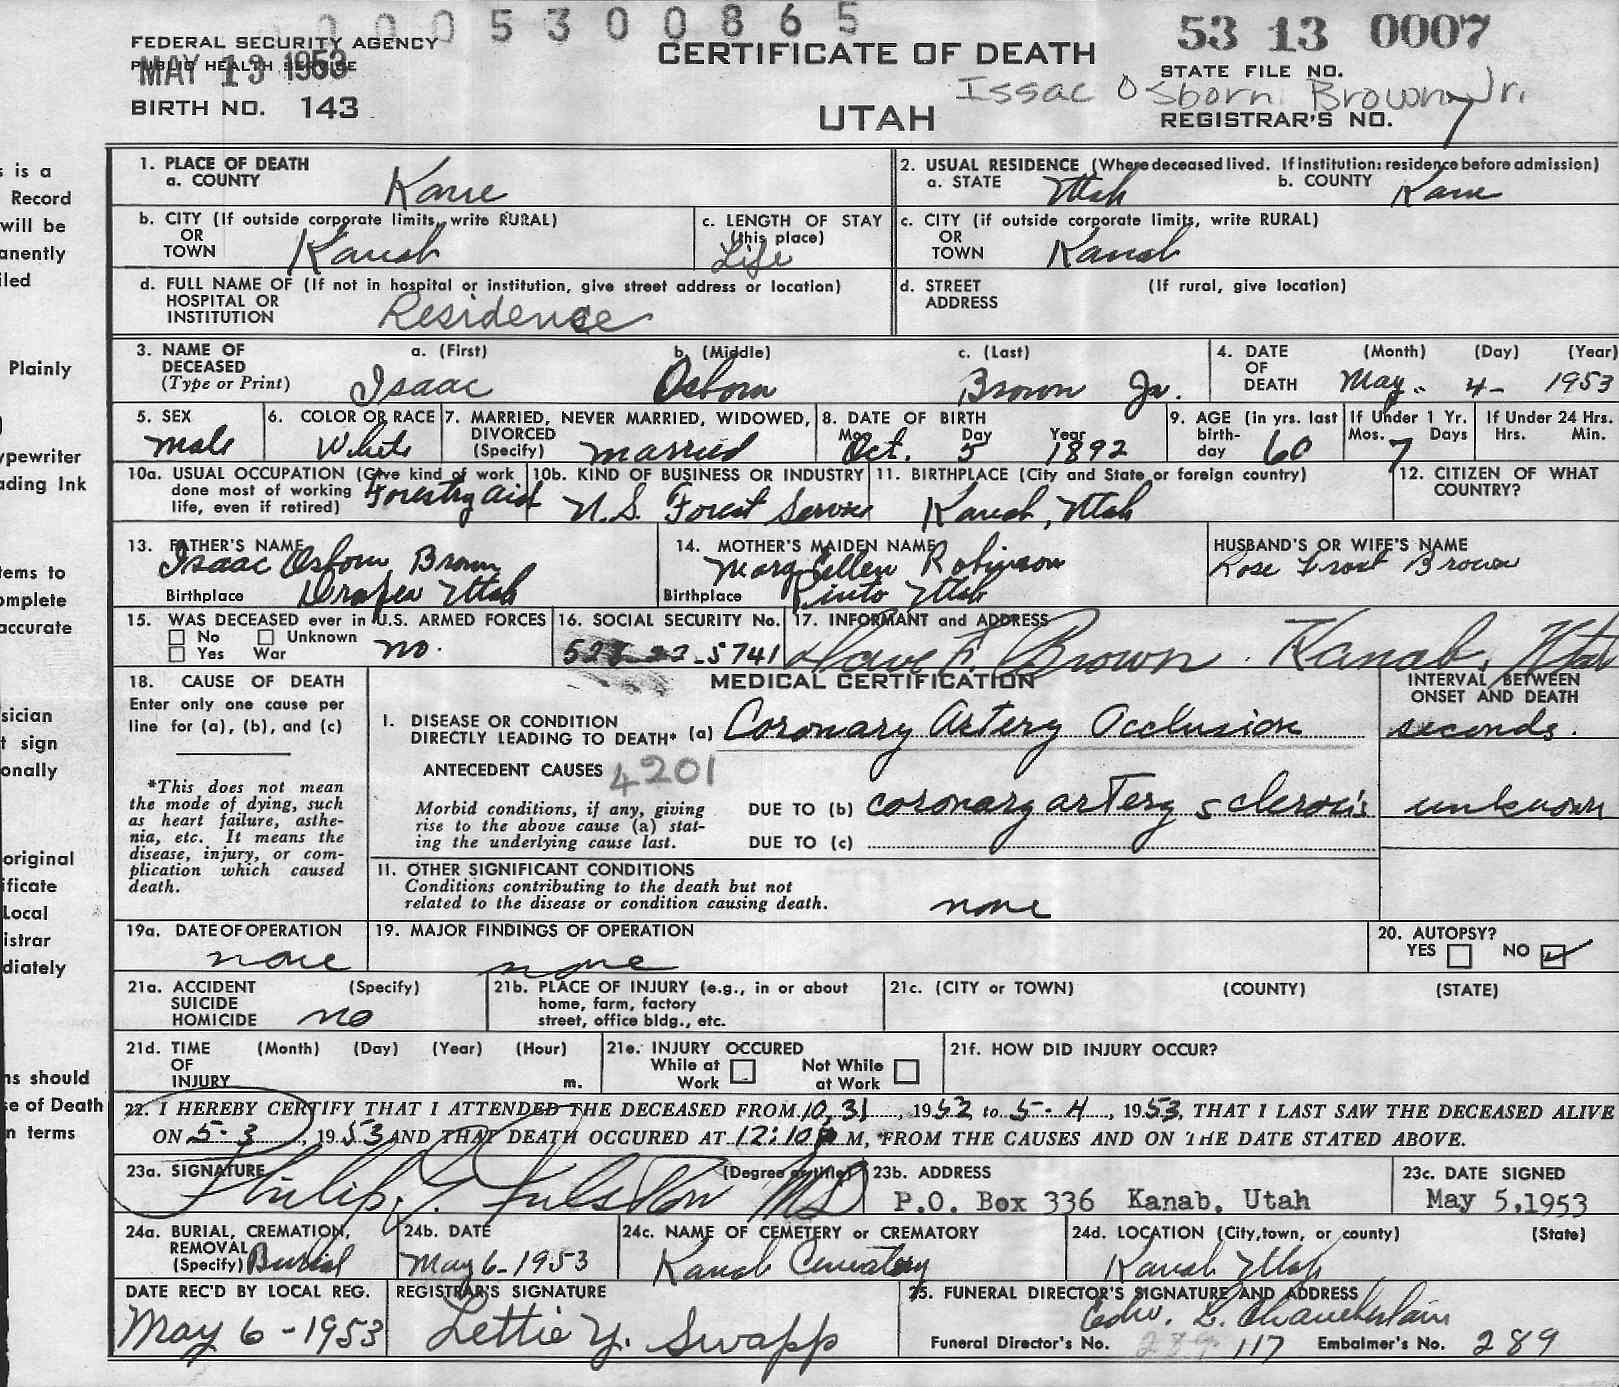 0 0 0 5 3 0 0 8 6 5
53 13 0007
FEDERAL SECURITY AGENCY
PUBLIC HEALTH SERVICE
MAY 13 1953
BIRTH NO. 143
CERTIFICATE OF DEATH
UTAH
STATE FILE NO.
Issac Osborn Brown, Jr.
REGISTRAR'S NO. 7
s is a
Record
will be
anently
iled
Plainly
)
ypewriter
ading Ink
tems to
omplete
accurate
sician
t sign
onally
original
ificate
Local
istrar
diately
ns should
se of Death
n terms
1. PLACE OF DEATH
a. COUNTY Kane
2. USUAL RESIDENCE (Where deceased lived. If institution: residence before admission)
a. STATE Utah b. COUNTY Kane
b. CITY (If outside corporate limits, write RURAL)
OR
TOWN Kanab
c. LENGTH OF STAY
(this place)
Life
c. CITY (if outside corporate limits, write RURAL)
OR
TOWN Kanab
d. FULL NAME OF (If not in hospital or institution, give street address or location)
HOSPITAL OR
INSTITUTION Residence
d. STREET (If rural, give location)
ADDRESS
3. NAME OF a. (First) b. (Middle) c. (Last)
DECEASED
(Type or Print) Isaac Osborn Brown Jr.
4. DATE (Month) (Day) (Year)
OF
DEATH May. 4- 1953
5. SEX
Male
6. COLOR OR RACE
White
7. MARRIED, NEVER MARRIED, WIDOWED,
DIVORCED
(Specify) Married
8. DATE OF BIRTH
Mo. Day Year
Oct. 5 1892
9. AGE (in yrs. last
birth-
day 60
If Under 1 Yr.
Mos. 7 Days
If Under 24 Hrs.
Hrs. Min.
10a. USUAL OCCUPATION (Give kind of work
done most of working
life, even if retired) Forestry aid
10b. KIND OF BUSINESS OR INDUSTRY
U.S. Forest Service
11. BIRTHPLACE (City and State or foreign country)
Kanab, Utah
12. CITIZEN OF WHAT
COUNTRY?
13. FATHER'S NAME
Isaac Osborn Brown
Birthplace Draper Utah
14. MOTHER'S MAIDEN NAME
Mary Ellen Robinson
Birthplace Pinto Utah
HUSBAND'S OR WIFE'S NAME
Rose Frost Brown
15. WAS DECEASED ever in U.S. ARMED FORCES
No Unknown
Yes War no.
16. SOCIAL SECURITY No.
528-22-5741
17. INFORMANT and ADDRESS
Dave F. Brown. Kanab, Utah
18. CAUSE OF DEATH
Enter only one cause per
line for (a), (b), and (c)
*This does not mean
the mode of dying, such
as heart failure, asthe-
nia, etc. It means the
disease, injury, or com-
plication which caused
death.
MEDICAL CERTIFICATION
INTERVAL BETWEEN
ONSET AND DEATH
I. DISEASE OR CONDITION
DIRECTLY LEADING TO DEATH* (a) Coronary Artery Occlusion seconds.
ANTECEDENT CAUSES 4201
Morbid conditions, if any, giving
rise to the above cause (a) stat-
ing the underlying cause last.
DUE TO (b) coronary artery sclerosis unknown
DUE TO (c)
II. OTHER SIGNIFICANT CONDITIONS
Conditions contributing to the death but not
related to the disease or condition causing death. none
19a. DATE OF OPERATION
none
19. MAJOR FINDINGS OF OPERATION
none
20. AUTOPSY?
YES NO
21a. ACCIDENT (Specify)
SUICIDE
HOMICIDE no
21b. PLACE OF INJURY (e.g., in or about
home, farm, factory
street, office bldg., etc.
21c. (CITY or TOWN) (COUNTY) (STATE)
21d. TIME (Month) (Day) (Year) (Hour)
OF
INJURY m.
21e. INJURY OCCURED
While at Not While
Work at Work
21f. HOW DID INJURY OCCUR?
22. I HEREBY CERTIFY THAT I ATTENDED THE DECEASED FROM 10,31, 1952 to 5-4, 1953, THAT I LAST SAW THE DECEASED ALIVE
ON 5-3, 1953 AND THAT DEATH OCCURED AT 12:10 P M, FROM THE CAUSES AND ON THE DATE STATED ABOVE.
23a. SIGNATURE (Degree or title)
Philip. G. Fulstow MD
23b. ADDRESS
P.O. Box 336 Kanab, Utah
23c. DATE SIGNED
May 5,1953
24a. BURIAL, CREMATION,
REMOVAL
(Specify) Burial
24b. DATE
May 6-1953
24c. NAME OF CEMETERY or CREMATORY
Kanab Cematery
24d. LOCATION (City, town, or county) (State)
Kanab Utah
DATE REC'D BY LOCAL REG.
May 6-1953
REGISTRAR'S SIGNATURE
Lettie Y. Swapp
25. FUNERAL DIRECTOR'S SIGNATURE AND ADDRESS
Edw. G. Chamberlain
Funeral Director's No. 289 117 Embalmer's No. 289